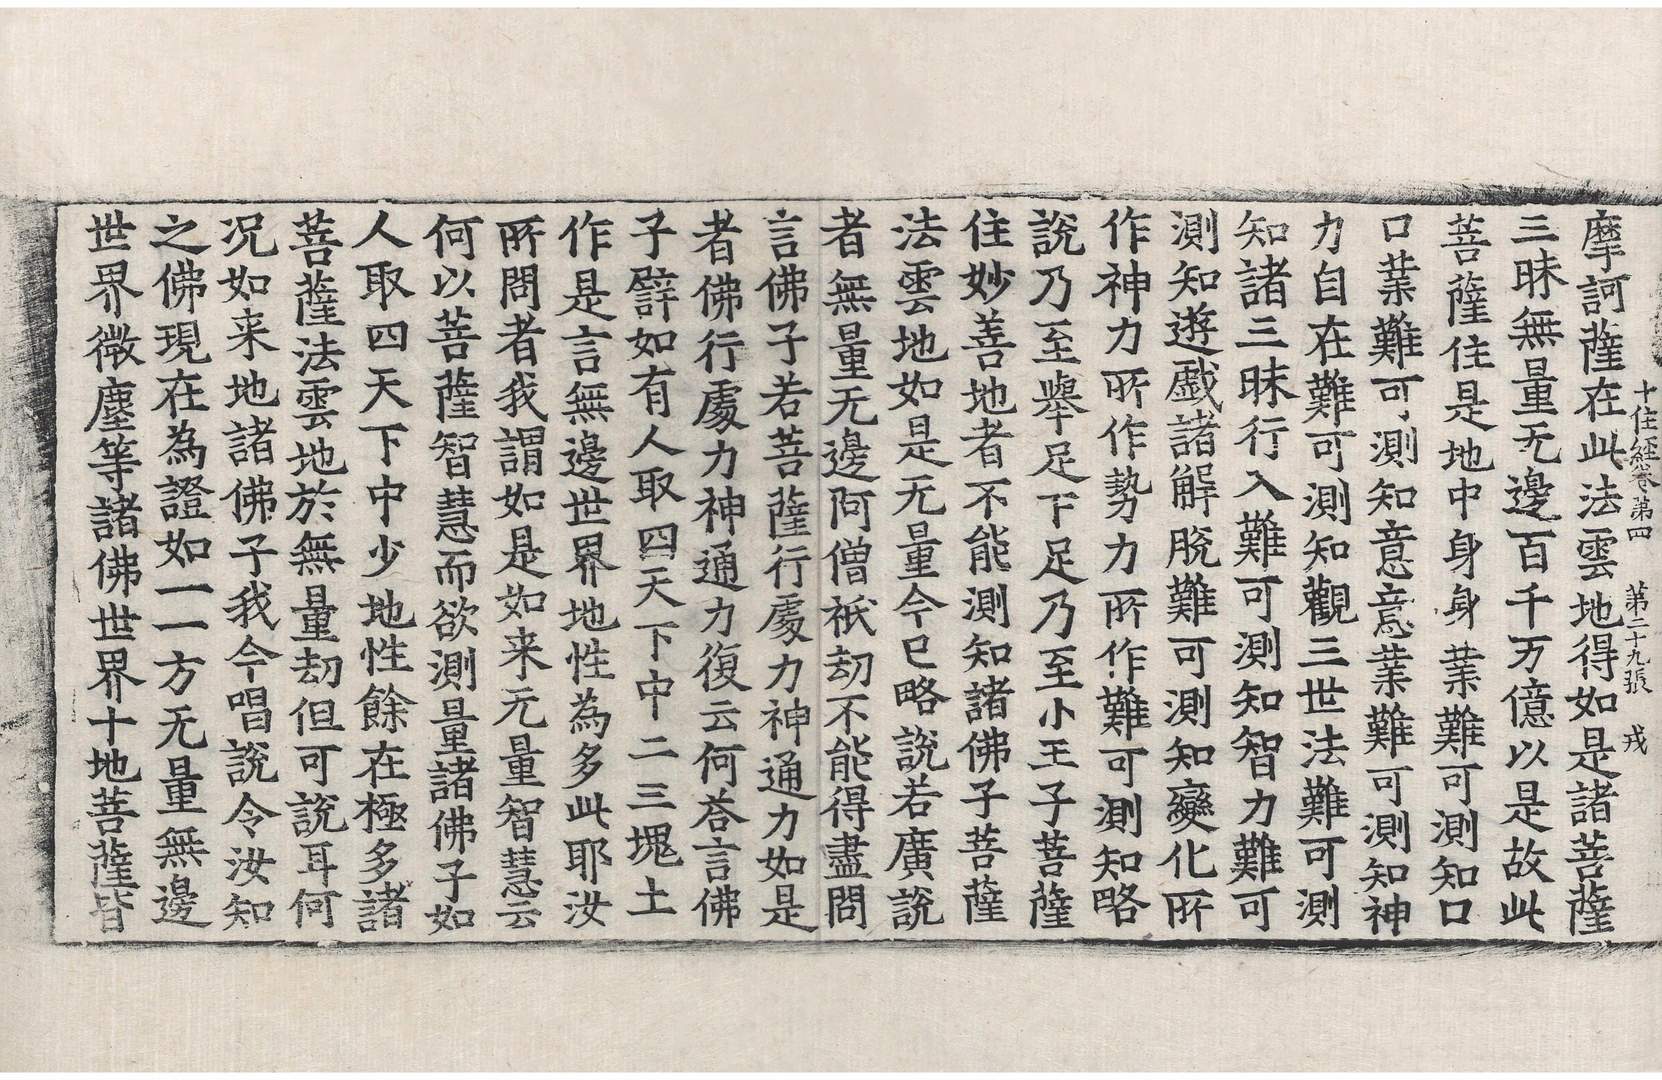 十住經卷第四　第二十九張　戎
摩訶薩在此法雲地得如是諸菩薩
三昧無量无邊百千万億以是故此
菩薩住是地中身身業難可測知口
口業難可測知意意業難可測知神
力自在難可測知觀三世法難可測
知諸三昧行入難可測知智力難可
測知遊戲諸解脫難可測知變化所
作神力所作勢力所作難可測知略
說乃至舉足下足乃至小王子菩薩
住妙善地者不能測知諸佛子菩薩
法雲地如是无量今已略說若廣說
者無量无邊阿僧祇劫不能得盡問
言佛子若菩薩行處力神通力如是
者佛行處力神通力復云何荅言佛
子譬如有人取四天下中二三塊土
作是言無邊世界地性為多此耶汝
所問者我謂如是如来无量智慧云
何以菩薩智慧而欲測量諸佛子如
人取四天下中少地性餘在極多諸
菩薩法雲地於無量劫但可說耳何
况如来地諸佛子我今唱說令汝知
之佛現在為證如一一方无量無邊
世界微塵等諸佛世界十地菩薩皆